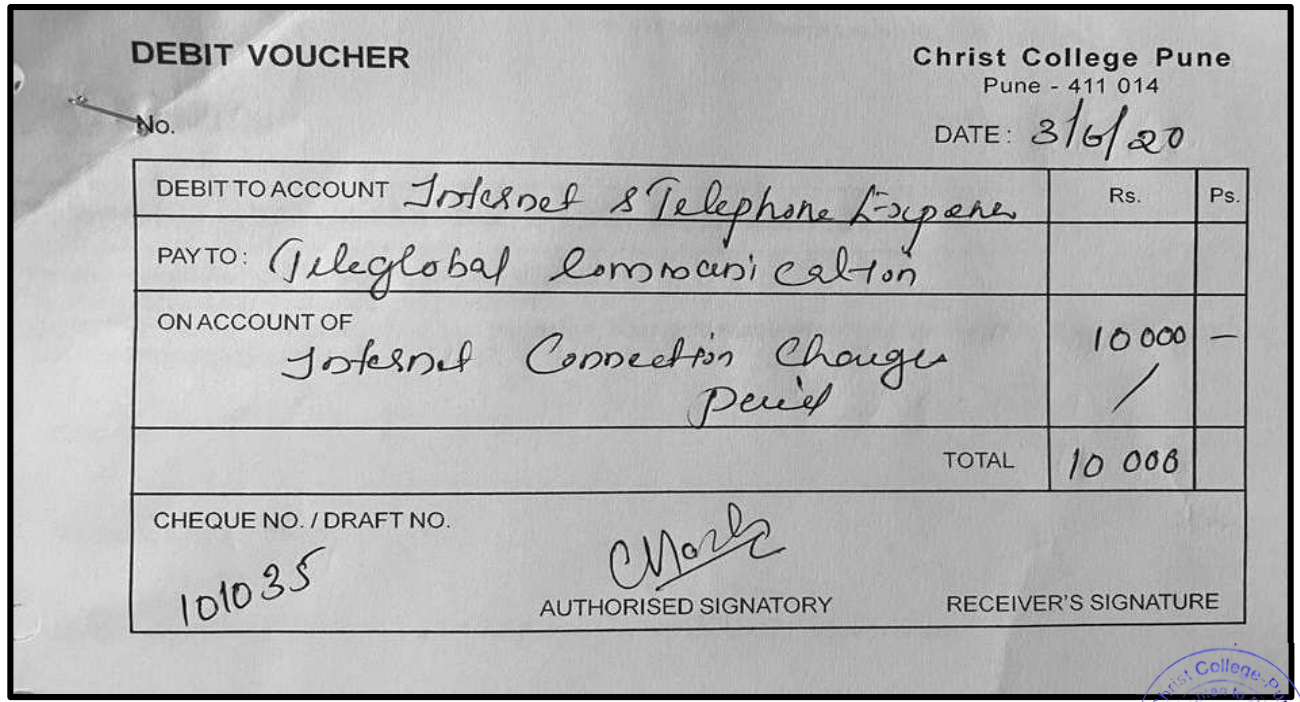 DEBIT VOUCHER
Christ College Pune
Pune - 411 014
No.
DATE : 3/6/20
DEBIT TO ACCOUNT Internet & Telephone Expenses
Rs. Ps.
PAY TO : Teleglobal Communication
ON ACCOUNT OF
Internet Connection Charges 10 000 -
paid
TOTAL 10 000
CHEQUE NO. / DRAFT NO.
101035
AUTHORISED SIGNATORY RECEIVER'S SIGNATURE
College